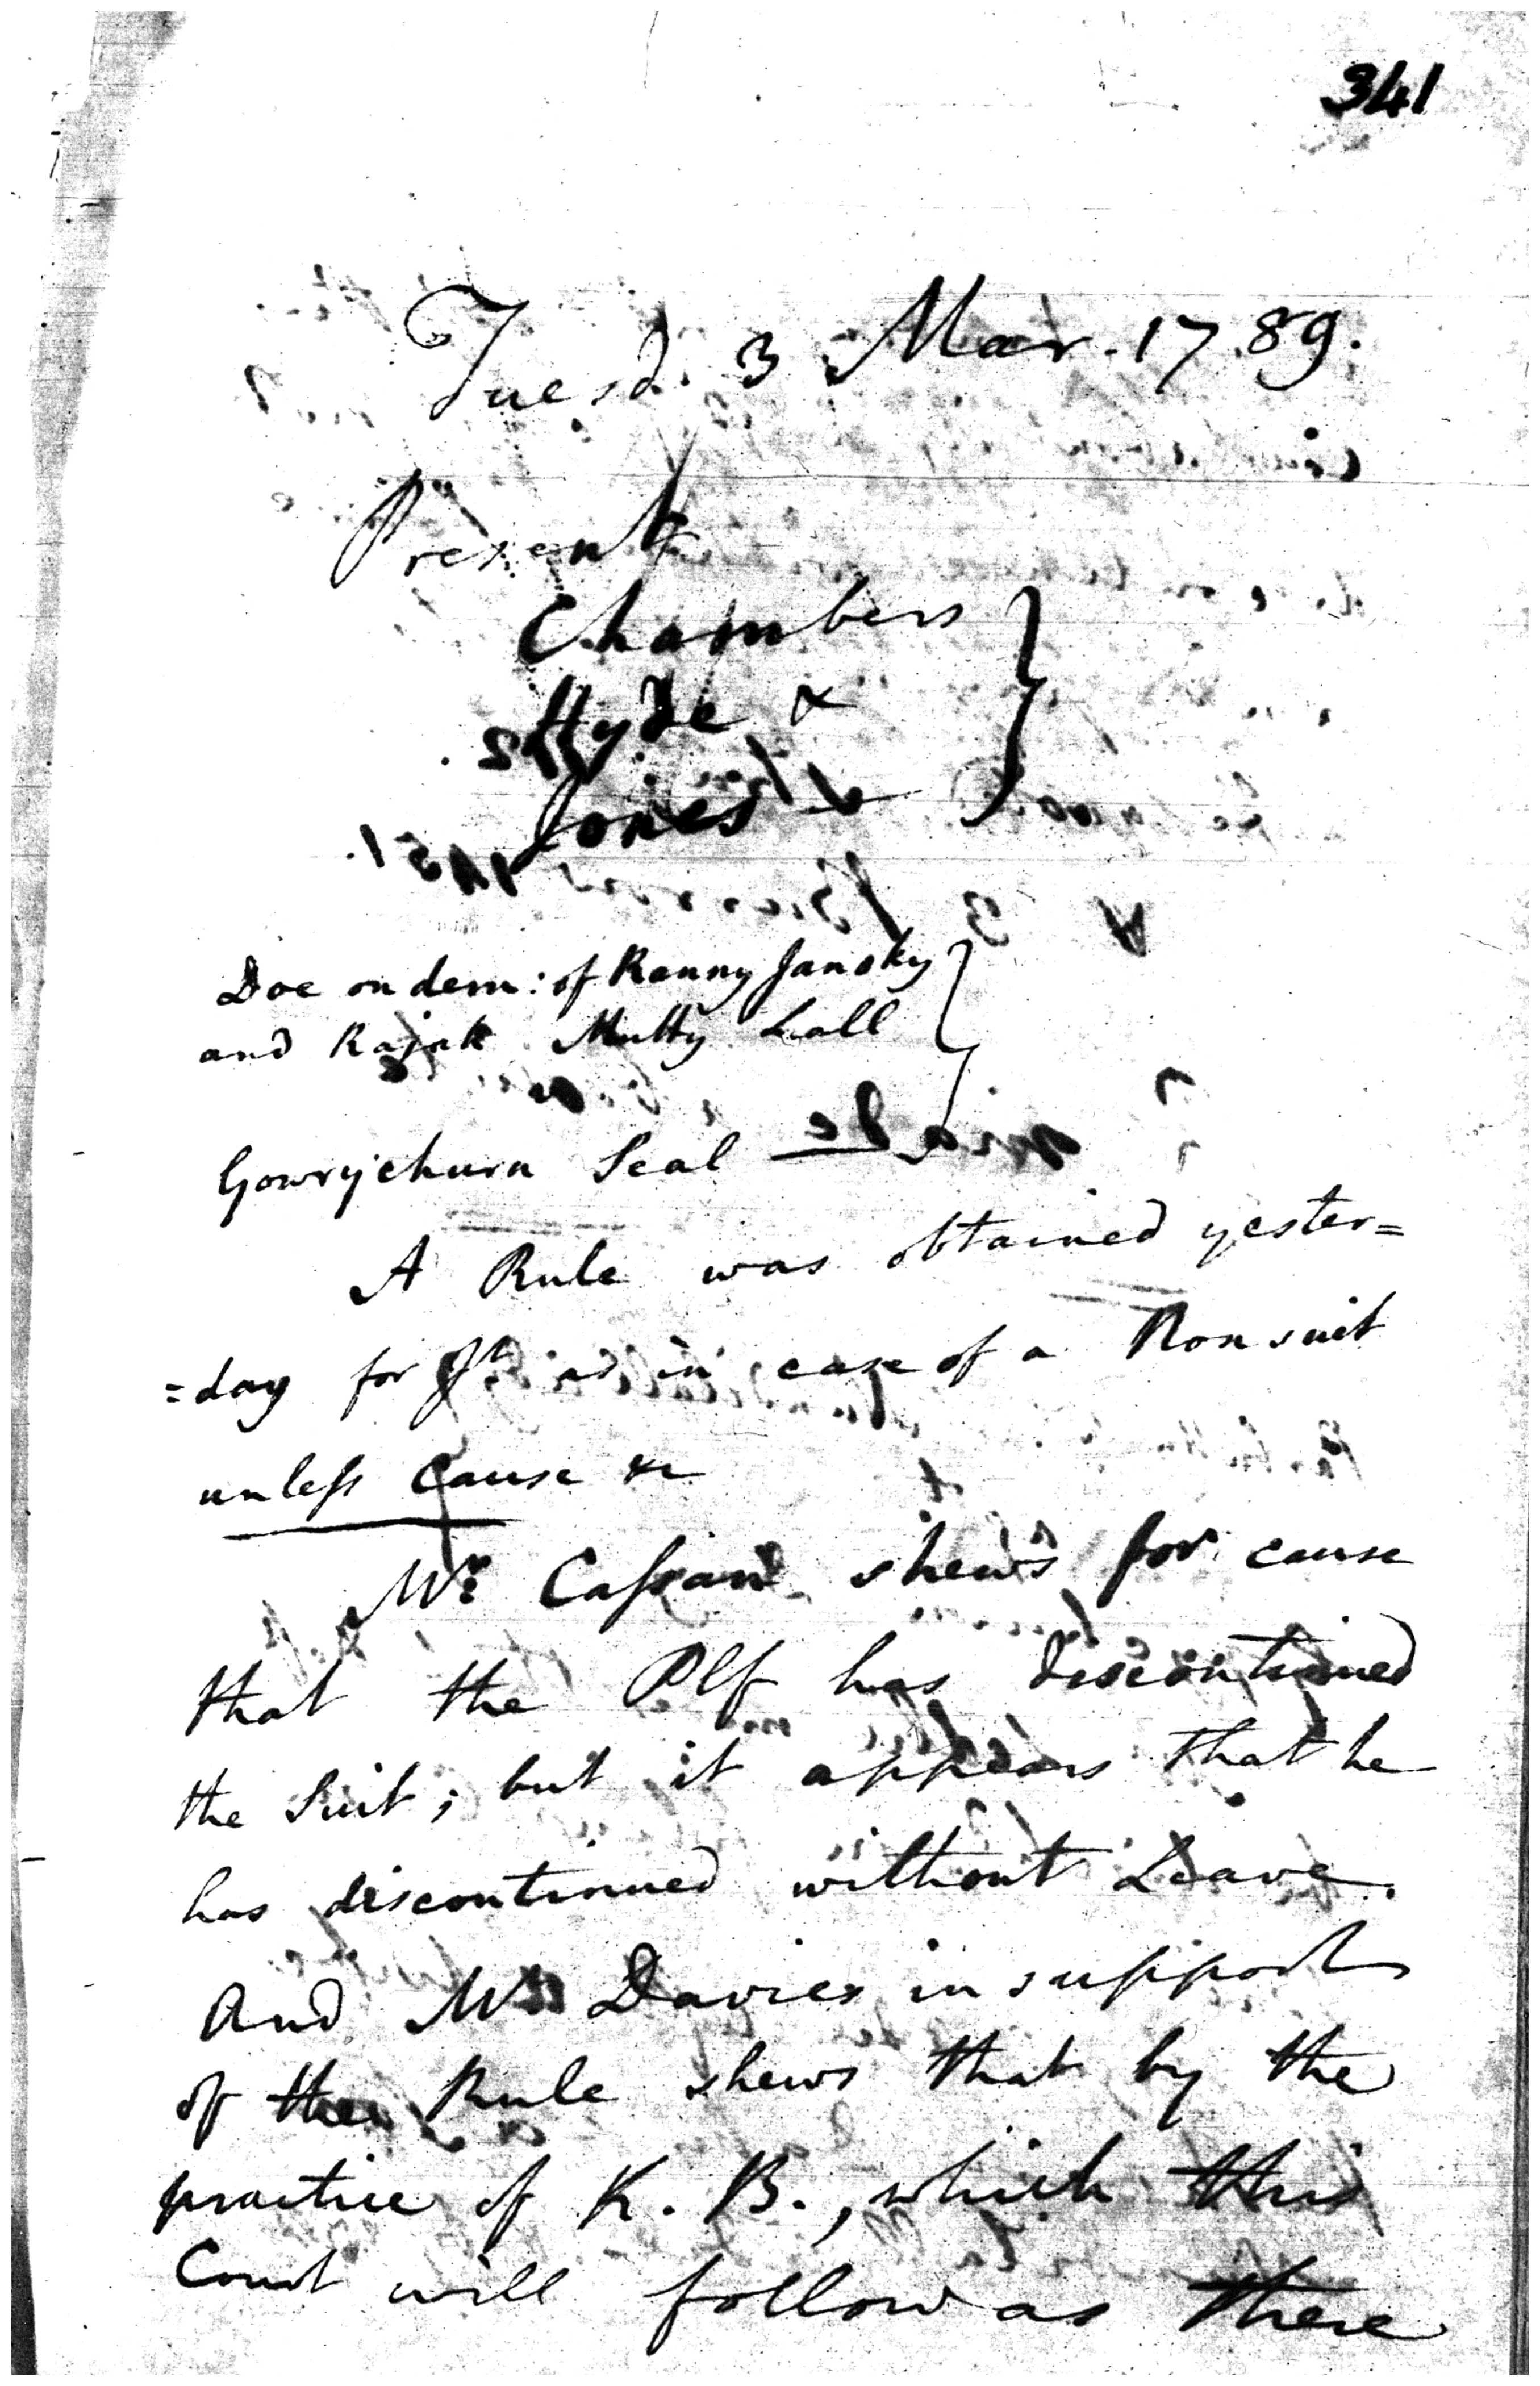 341
Tuesd. 3 Mar. 1789.
Present
Chambers
Hyde &
Jones
Doe on dem: of Ranny Jansky
and Rajah Mutty Lall
Gowrychurn Seal
A Rule was obtained yester=
=day for Jt. as in case of a Non suit
unless cause &c
Mr. Cassan shews for cause
that the Plf has discontinued
the Suit; but it appears that he
has discontinued without Leave.
And Mr. Davies in support
of the Rule shews that by the
practice of K. B., which this
Court will follow as there